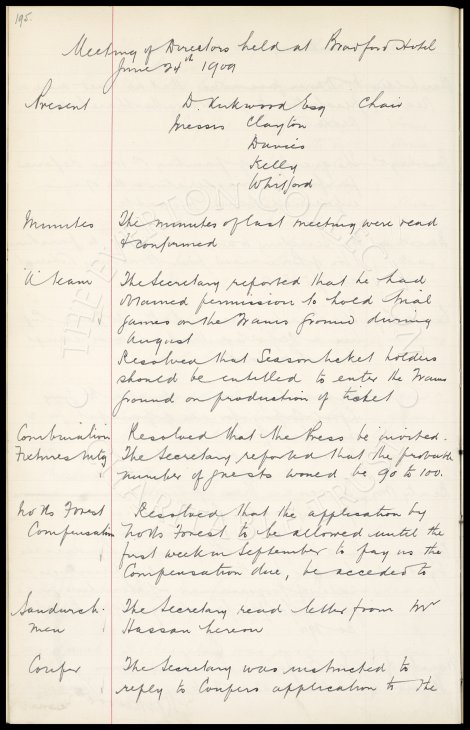 195.
Meeting of Directors held at Bradford Hotel
June 24th 1909
Present D. Kirkwood Esq Chair
Messrs Clayton
Davies
Kelly
Whitford
Minutes The minutes of last meeting were read
& confirmed
"A" team The Secretary reported that he had
obtained permission to hold trial
games on the Trams Ground during
August
Resolved that Season ticket holders
should be entitled to enter the Trams
Ground on production of ticket
Combination Resolved that the Press be invited.
Fixtures Mtg The Secretary reported that the probable
number of guests would be 90 to 100.
Notts Forest Resolved that the application by
Compensation Notts Forest to be allowed until the
first week in September to pay us the
Compensation due, be acceded to
Sandwich- The Secretary read letter from Mr
men Hassan hereon
Couper The Secretary was instructed to
reply to Coupers application to the